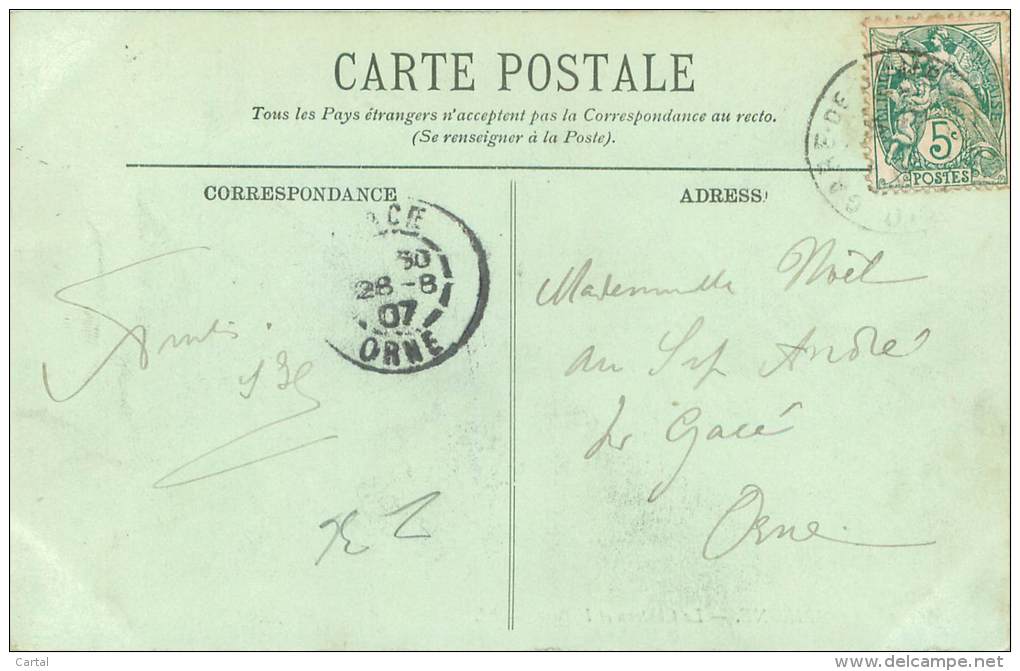 CARTE POSTALE
Tous les Pays étrangers n'acceptent pas la Correspondance au recto.
(Se renseigner à la Poste).
CORRESPONDANCE
ADRESS
5c
POSTES
GARE DE
30
28-8
07
ORNE
Mademoiselle Noël
au Sap André
par Gacé
Orne
Cartal
delcampe.net